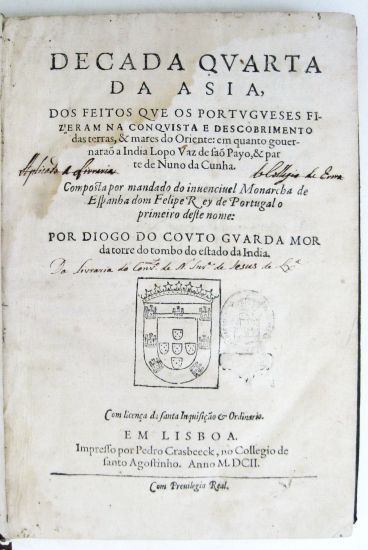 DECADA QVARTA
DA ASIA,
DOS FEITOS QVE OS PORTVGVESES FI-
ZERAM NA CONQVISTA E DESCOBRIMENTO
das terras, & mares do Oriente: em quanto gouer-
naraõ a India Lopo Vaz de saõ Payo, & par
te de Nuno da Cunha.
Applicado à Livraria do Collegio de
Composta por mandado do inuenciuel Monarcha de
Espanha dom Felipe Rey de Portugal o
primeiro deste nome:
POR DIOGO DO COVTO GVARDA MOR
da torre do tombo do estado da India.
Da Livraria do Conv.to de N. Snr.a de Jesus de Lx.a
Com licença da santa Inquisição & Ordinario.
EM LISBOA.
Impresso por Pedro Crasbeeck, no Collegio de
santo Agostinho. Anno M.DCII.
Com Preuilegio Real.